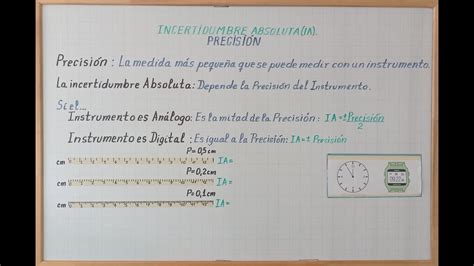 INCERTIDUMBRE ABSOLUTA(IA).
PRECISIÓN
Precisión: La medida más pequeña que se puede medir con un instrumento.
La incertidumbre Absoluta: Depende la Precisión del Instrumento.
Si el...
Instrumento es Análogo: Es la mitad de la Precisión: IA=±Precisión/2
Instrumento es Digital: Es igual a la Precisión: IA=± Precisión
P=0,5cm
cm IA=
P=0,2cm
cm IA=
P=0,1cm
cm IA=